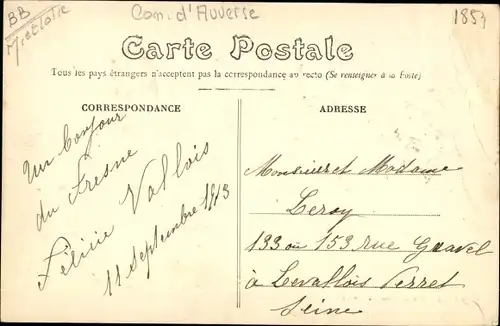 BB
Com. d'Auverse
1853
Carte Postale
Tous les pays étrangers n'acceptent pas la correspondance au recto (Se renseigner à la Poste)
CORRESPONDANCE
Un bonjour
du Fresne
Féline Vallois
11 Septembre 1913
ADRESSE
Monsieur et Madame
Leroy
133 ou 153 rue Gravel
à Levallois Perret
Seine